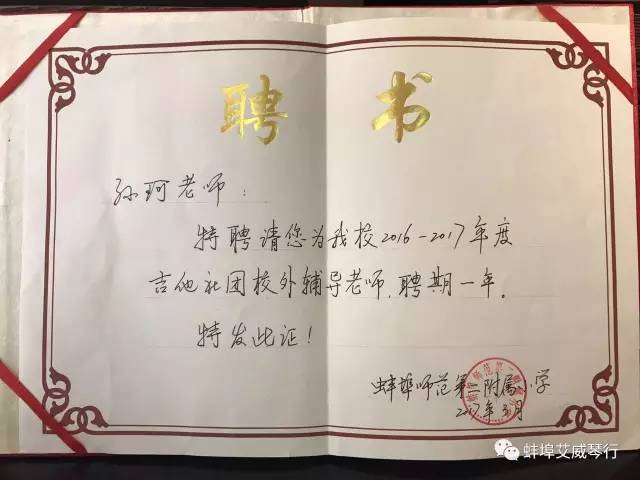 聘 书
孙珂老师：
特聘请您为我校2016-2017年度
吉他社团校外辅导老师，聘期一年。
特发此证！
蚌埠师范第二附属小学
2017年3月
蚌埠艾威琴行